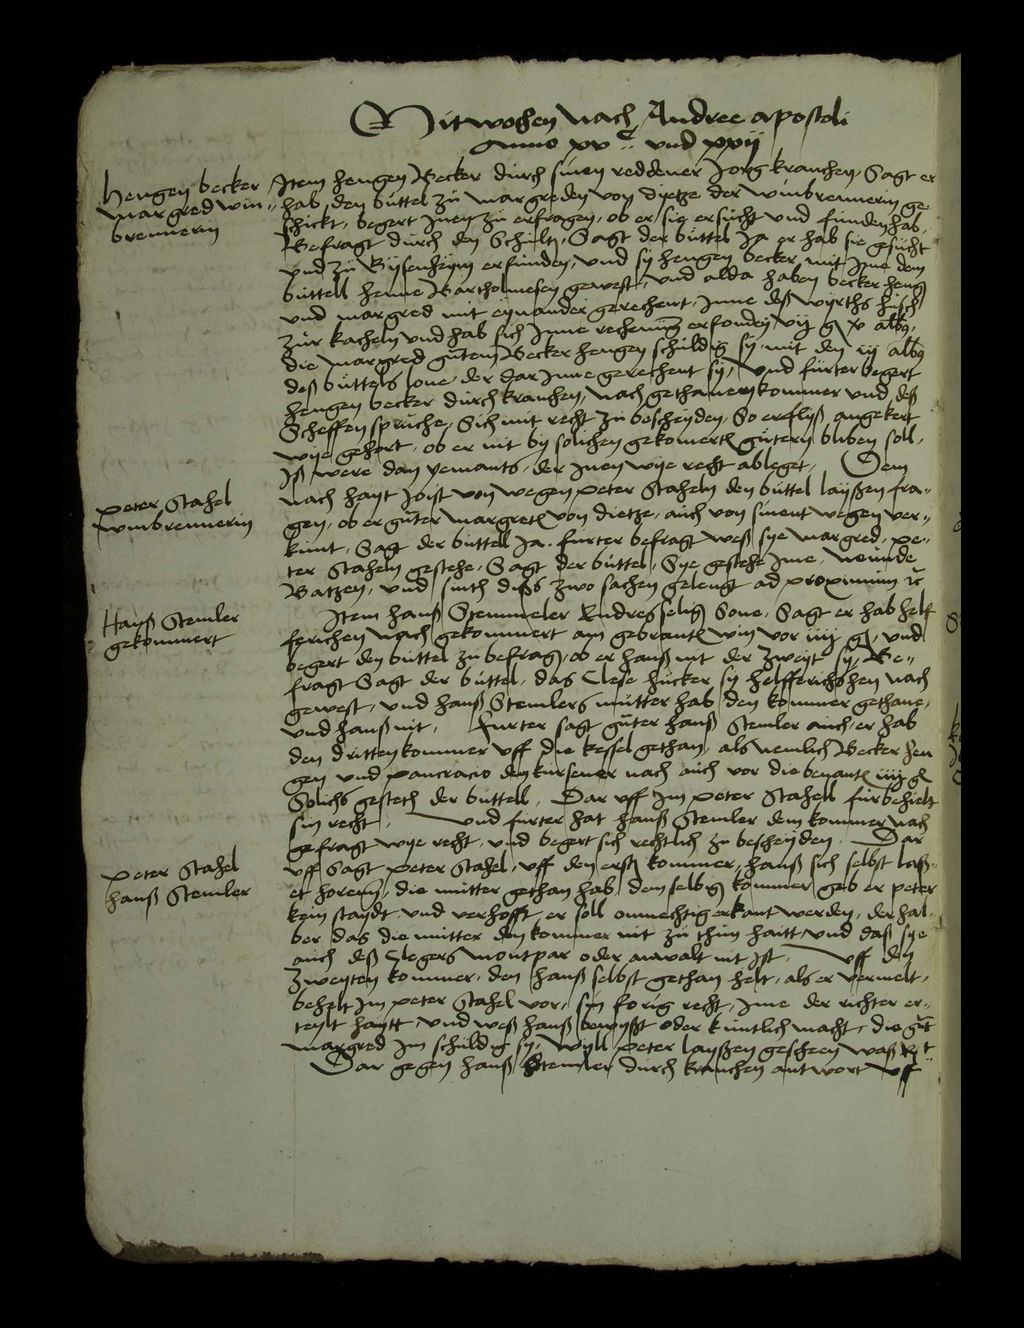 Mitwochen nach Andree apostoli
anno xvc und xvij
Hengen Becker
Margred win=
brennerin
Item Hengen Becker durch sinen reddener Jorg Kranchen, Sagt er
hab den büttel zu Margreden von Dietze der winbrennerin ge=
schickt, begert Inen zu erfragen, ob er sie ersucht und funden hab,
Befragt durch den Schulth, Sagt der büttel Ja er hab sie gesucht
und zu Bysenheym erfunden, und sy Hengen Becker mit Ime dem
büttell Henne Bartholmesen gewest, und alda haben Becker Heng
und Margred mit eynander gerechent, Inne deß wyrths husch
zur Kacheln und hab sich Inne rechenung erfonden vij g x albus,
die Margred gutem Becker Hengen schuldig sy, mit den iij albus
deß büttels lone, der dar Inne gerechent sy, Und furter begert
Hengen Becker durch Kranchen, nach gethanem kommer und deß
Scheffen spruche, Sich mit recht zu bescheyden, So er flyß angekert
wye gehort, ob er nit by solichen gekomerten gütern bliben soll,
Iß were dan yemants, der Inen wye recht ableget, Dem
Peter Stahel
winbrennerin
nach hayt Joist von wegen Peter Staheln den büttel layßen fra=
gen, ob er guter Margreth von Dietze, auch von sinent wegen ver=
kunt, Sagt der büttel Ja, furter befragt weß sye Margred, Pe=
ter Staheln gestehe, Sagt der büttel, Sye gestehe Ime, neunde
Batzen, und sinth diß zwo sachen gelengt ad proximum etc
Hanß Stemler
gekommert
Item Hanß Stemmeler Endres selig Sone, Sagt er hab Helf
ferichen nach gekommert am gebranten win vor iiij g, und
begert den büttel zu befragen, ob er Hanß nit der zweyt sy, Be=
fragt Sagt der büttel, das Clese Hucker sy Helfferichs hen nach
gewest, und Hanß Stemlers mutter hab den kommer gethane,
und Hanß nit, Furter sagt guter Hanß Stemler auch, er hab
den dritten kommer uff die kessel gethan, als nemlich Becker Hen
gen und Pancracio den kursener nach auch vor die benanten iiij gl
Solichs gesteth der büttell, Dar uff Im Peter Stahell furbehielt
sin recht, Und furter hat Hanß Stemler dem kommer nach
gefragt wye recht, und begert sich rechtlich zu bescheyden, Dar
Peter Stahel
Hanß Stemler
uff Sagt Peter Stahel, uff den erst kommer, Hanß sich selbst laß=
et horenn, die mutter gethan hab, dem selbig kommer geb er Peter
kein staydt, und verhofft er soll onmechtig erkant werden, der hal=
ber das die mutter den kommer nit zu thun haitt, und daß sye
auch deß Clegers montpar oder anwalt nit Ist, Uff den
zweyten kommer, den Hanß selbst gethan helt, als er vermelt,
behelt Im Peter Stahel vor, sin forig recht, Ime der richter er=
teylt haytt, und weß Hanß bewyßt oder kuntlich macht, die gut
Margred Im schuldig sy, wyll Peter layßen gescheen waß Recht
Dar gegen Hanß Stemler durch Kranchen antwort uff